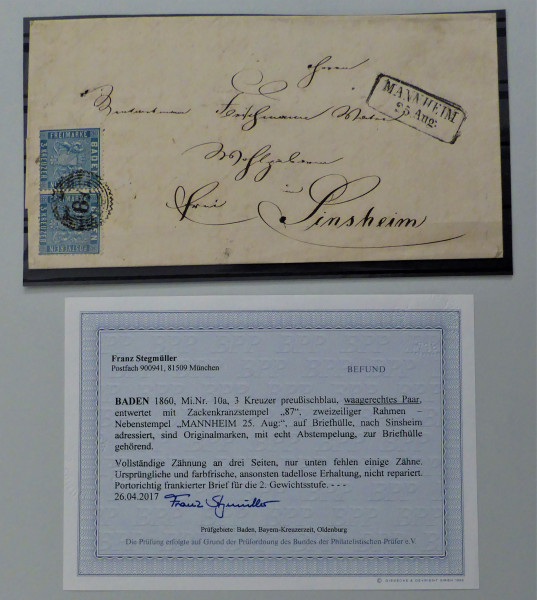 Herrn
Wohlgeboren
in
frei Sinsheim
MANNHEIM
25. Aug.
FREIMARKE
BADEN
87
Franz Stegmüller
Postfach 900941, 81509 München
BEFUND
BADEN 1860, Mi.Nr. 10a, 3 Kreuzer preußischblau, waagerechtes Paar,
entwertet mit Zackenkranzstempel „87“, zweizeiliger Rahmen –
Nebenstempel „MANNHEIM 25. Aug:“, auf Briefhülle, nach Sinsheim
adressiert, sind Originalmarken, mit echt Abstempelung, zur Briefhülle
gehörend.
Vollständige Zähnung an drei Seiten, nur unten fehlen einige Zähne.
Ursprüngliche und farbfrische, ansonsten tadellose Erhaltung, nicht repariert.
Portorichtig frankierter Brief für die 2. Gewichtsstufe. - - -
26.04.2017 Franz Stegmüller
Prüfgebiete: Baden, Bayern-Kreuzerzeit, Oldenburg
Die Prüfung erfolgte auf Grund der Prüfordnung des Bundes der Philatelistischen Prüfer e.V.